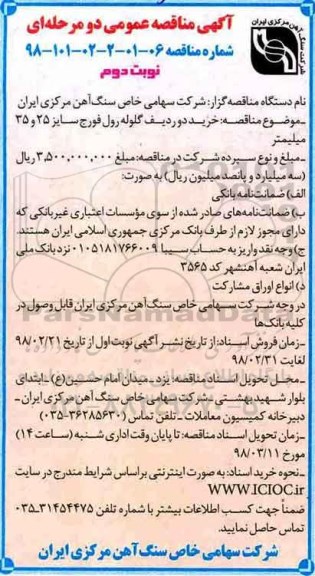 آگهی مناقصه عمومی دو مرحله‌ای
شماره مناقصه ۰۶-۰۱-۲-۰۲-۱۰۱-۹۸
نوبت دوم
شرکت سنگ آهن مرکزی ایران
نام دستگاه مناقصه گزار: شرکت سهامی خاص سنگ آهن مرکزی ایران
-موضوع مناقصه: خرید دو ردیف گلوله رول فورج سایز ۲۵ و ۳۵
میلیمتر
-مبلغ و نوع سپرده شرکت در مناقصه: مبلغ ۳,۵۰۰,۰۰۰,۰۰۰ ریال
(سه میلیارد و پانصد میلیون ریال) به صورت:
الف) ضمانت‌نامه بانکی
ب) ضمانت‌نامه‌های صادر شده از سوی مؤسسات اعتباری غیربانکی که
دارای مجوز لازم از طرف بانک مرکزی جمهوری اسلامی ایران هستند.
ج) وجه نقد واریز به حساب سیبا ۰۱۰۵۱۸۱۷۶۶۰۰۹ نزد بانک ملی
ایران شعبه آهنشهر کد ۳۵۶۵
د) انواع اوراق مشارکت
در وجه شرکت سهامی خاص سنگ آهن مرکزی ایران قابل وصول در
کلیه بانک‌ها
-زمان فروش اسناد: از تاریخ نشر آگهی نوبت اول از تاریخ ۹۸/۰۲/۲۱
لغایت ۹۸/۰۲/۳۱
-محل تحویل اسناد مناقصه: یزد-میدان امام حسین(ع)-ابتدای
بلوار شهید بهشتی-شرکت سهامی خاص سنگ آهن مرکزی ایران-
دبیرخانه کمیسیون معاملات-تلفن تماس (۳۶۲۸۵۶۳۰-۰۳۵)
-زمان تحویل اسناد مناقصه: تا پایان وقت اداری شنبه (ساعت ۱۴)
مورخ ۹۸/۰۳/۱۱
-نحوه خرید اسناد: به صورت اینترنتی بر اساس شرایط مندرج در سایت
WWW.ICIOC.ir
ضمناً جهت کسب اطلاعات بیشتر با شماره تلفن ۳۱۴۵۴۴۷۵-۰۳۵
تماس حاصل نمایید.
شرکت سهامی خاص سنگ آهن مرکزی ایران